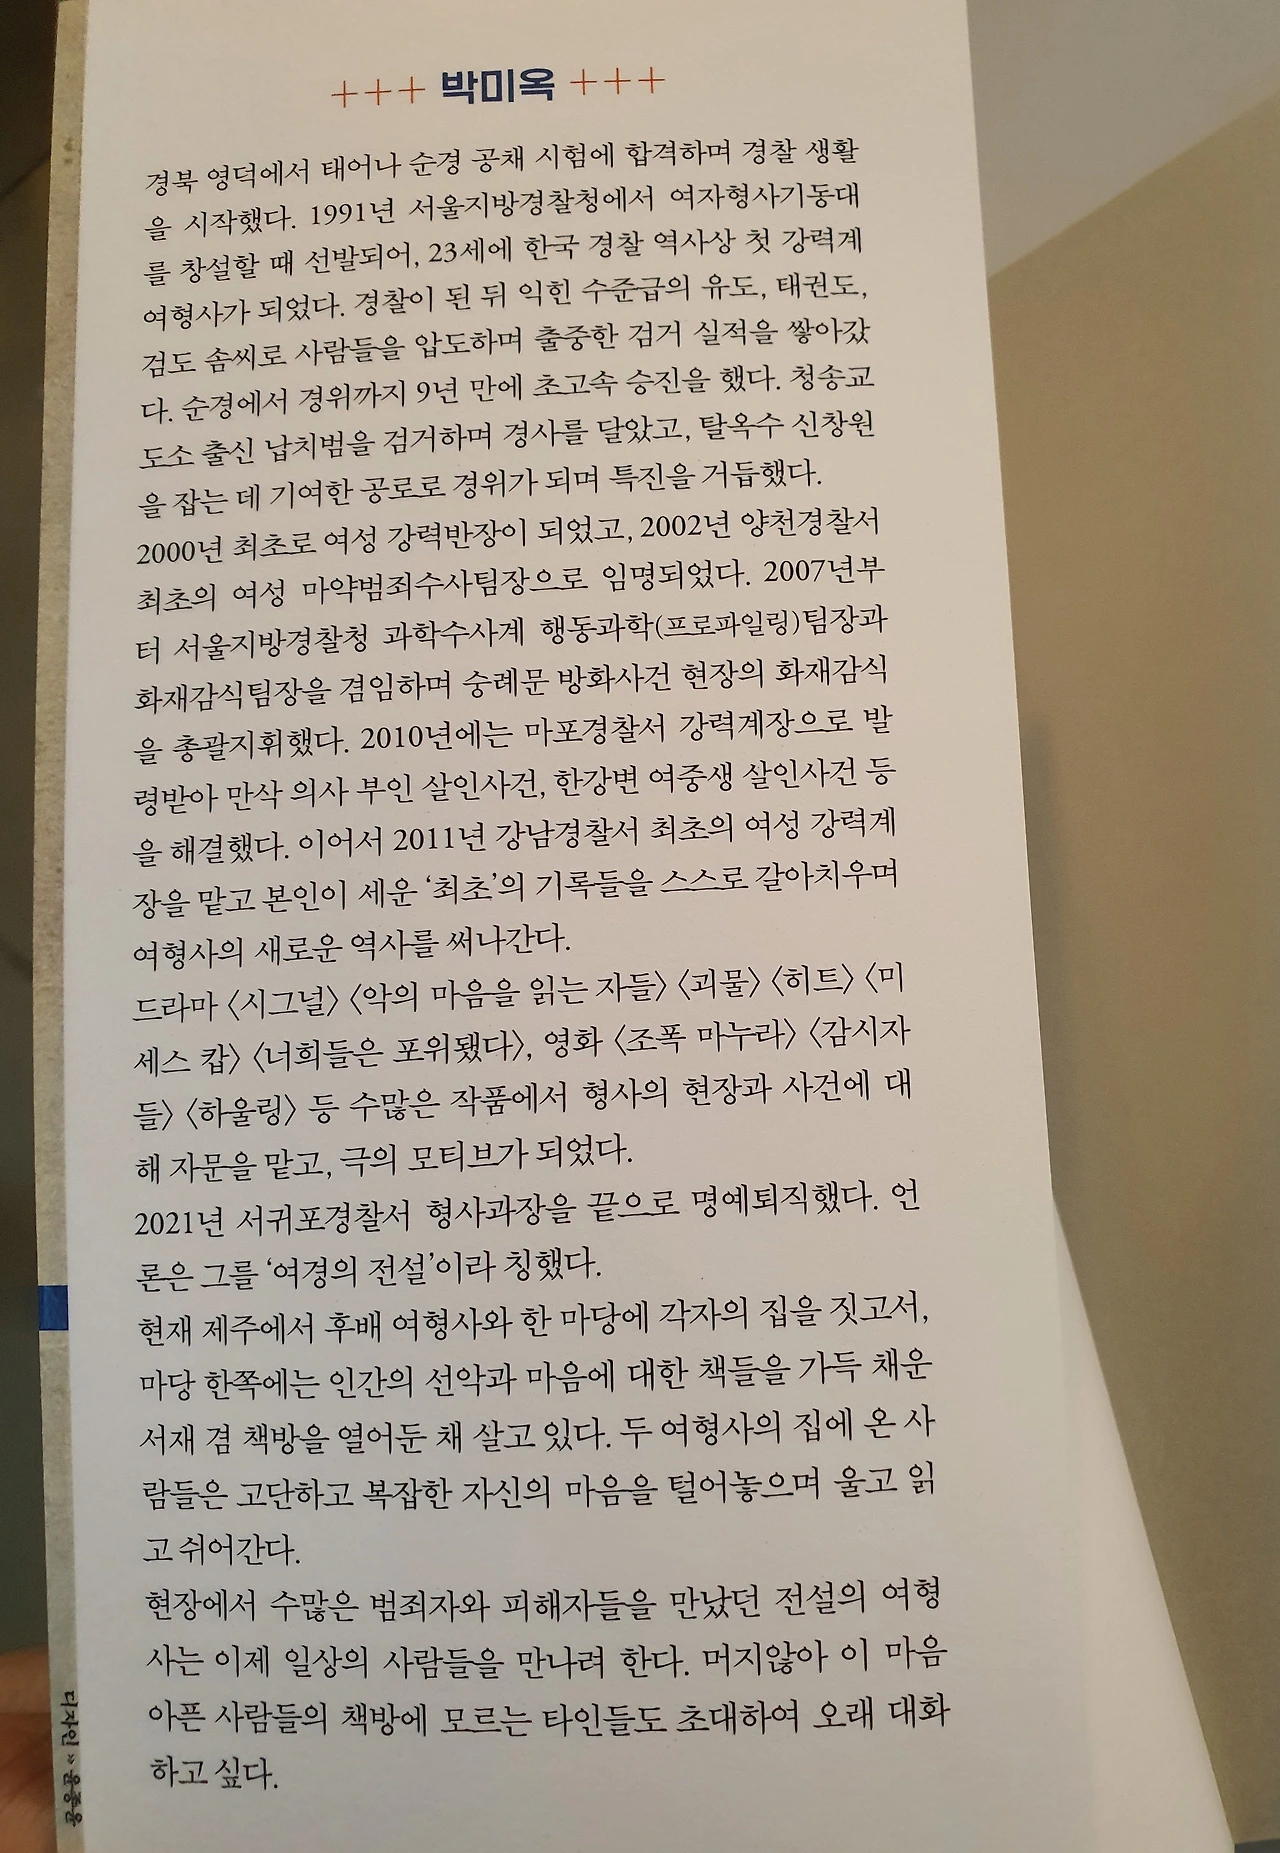 +++ 박미옥 +++
경북 영덕에서 태어나 순경 공채 시험에 합격하며 경찰 생활
을 시작했다. 1991년 서울지방경찰청에서 여자형사기동대
를 창설할 때 선발되어, 23세에 한국 경찰 역사상 첫 강력계
여형사가 되었다. 경찰이 된 뒤 익힌 수준급의 유도, 태권도,
검도 솜씨로 사람들을 압도하며 출중한 검거 실적을 쌓아갔
다. 순경에서 경위까지 9년 만에 초고속 승진을 했다. 청송교
도소 출신 납치범을 검거하며 경사를 달았고, 탈옥수 신창원
을 잡는 데 기여한 공로로 경위가 되며 특진을 거듭했다.
2000년 최초로 여성 강력반장이 되었고, 2002년 양천경찰서
최초의 여성 마약범죄수사팀장으로 임명되었다. 2007년부
터 서울지방경찰청 과학수사계 행동과학(프로파일링)팀장과
화재감식팀장을 겸임하며 숭례문 방화사건 현장의 화재감식
을 총괄지휘했다. 2010년에는 마포경찰서 강력계장으로 발
령받아 만삭 의사 부인 살인사건, 한강변 여중생 살인사건 등
을 해결했다. 이어서 2011년 강남경찰서 최초의 여성 강력계
장을 맡고 본인이 세운 ‘최초’의 기록들을 스스로 갈아치우며
여형사의 새로운 역사를 써나간다.
드라마 〈시그널〉 〈악의 마음을 읽는 자들〉 〈괴물〉 〈히트〉 〈미
세스 캅〉 〈너희들은 포위됐다〉, 영화 〈조폭 마누라〉 〈감시자
들〉 〈하울링〉 등 수많은 작품에서 형사의 현장과 사건에 대
해 자문을 맡고, 극의 모티브가 되었다.
2021년 서귀포경찰서 형사과장을 끝으로 명예퇴직했다. 언
론은 그를 ‘여경의 전설’이라 칭했다.
현재 제주에서 후배 여형사와 한 마당에 각자의 집을 짓고서,
마당 한쪽에는 인간의 선악과 마음에 대한 책들을 가득 채운
서재 겸 책방을 열어둔 채 살고 있다. 두 여형사의 집에 온 사
람들은 고단하고 복잡한 자신의 마음을 털어놓으며 울고 읽
고 쉬어간다.
현장에서 수많은 범죄자와 피해자들을 만났던 전설의 여형
사는 이제 일상의 사람들을 만나려 한다. 머지않아 이 마음
아픈 사람들의 책방에 모르는 타인들도 초대하여 오래 대화
하고 싶다.
디자인 »